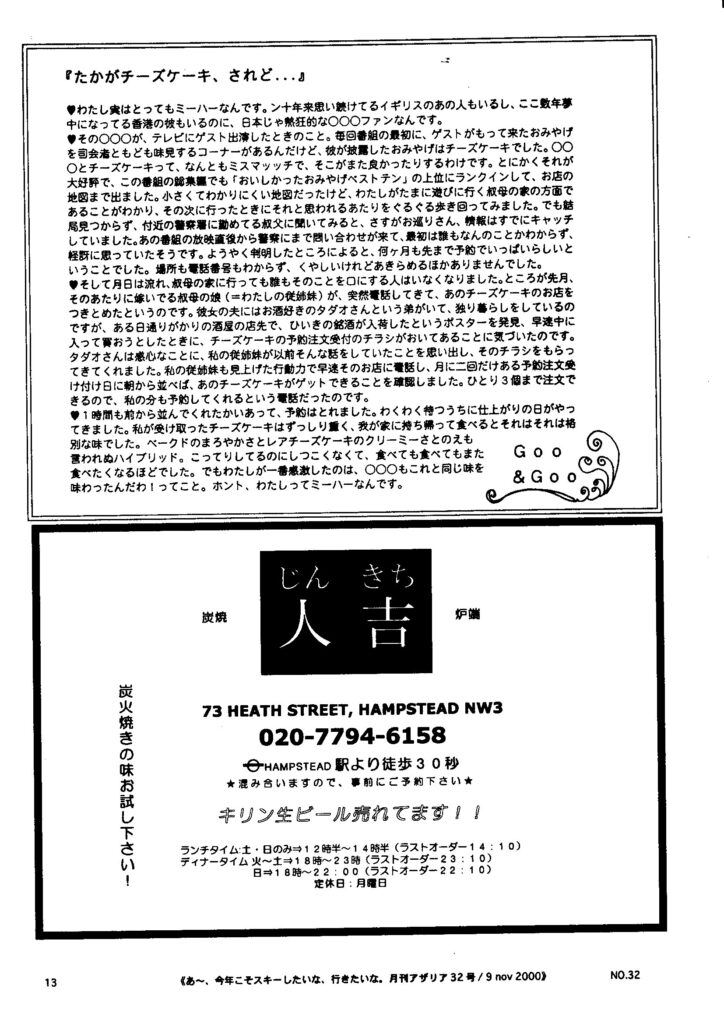 『たかがチーズケーキ、されど...』
♥わたし実はとってもミーハーなんです。ン十年来思い続けてるイギリスのあの人もいるし、ここ数年夢
中になってる香港の彼もいるのに、日本じゃ熱狂的な〇〇〇ファンなんです。
♥その〇〇〇が、テレビにゲスト出演したときのこと。毎回番組の最初に、ゲストがもって来たおみやげ
を司会者ともども味見するコーナーがあるんだけど、彼が披露したおみやげはチーズケーキでした。〇〇
〇とチーズケーキって、なんともミスマッッチで、そこがまた良かったりするわけです。とにかくそれが
大好評で、この番組の総集編でも「おいしかったおみやげベストテン」の上位にランクインして、お店の
地図まで出ました。小さくてわかりにくい地図だったけど、わたしがたまに遊びに行く叔母の家の方面で
あることがわかり、その次に行ったときにそれと思われるあたりをぐるぐる歩き回ってみました。でも結
局見つからず、付近の警察署に勤めてる叔父に聞いてみると、さすがお巡りさん、情報はすでにキャッチ
していました。あの番組の放映直後から警察にまで問い合わせが来て、最初は誰もなんのことかわからず、
怪訝に思っていたそうです。ようやく判明したところによると、何ヶ月も先まで予約でいっぱいらしいと
いうことでした。場所も電話番号もわからず、くやしいけれどあきらめるほかありませんでした。
♥そして月日は流れ、叔母の家に行っても誰もそのことを口にする人はいなくなりました。ところが先月、
そのあたりに嫁いでる叔母の娘（＝わたしの従姉妹）が、突然電話してきて、あのチーズケーキのお店を
つきとめたというのです。彼女の夫にはお酒好きのタダオさんという弟がいて、独り暮らしをしているの
ですが、ある日通りがかりの酒屋の店先で、ひいきの銘酒が入荷したというポスターを発見、早速中に
入って買おうとしたときに、チーズケーキの予約注文受付のチラシがおいてあることに気づいたのです。
タダオさんは感心なことに、私の従姉妹が以前そんな話をしていたことを思い出し、そのチラシをもらっ
てきてくれました。私の従姉妹も見上げた行動力で早速そのお店に電話し、月に二回だけある予約注文受
け付け日に朝から並べば、あのチーズケーキがゲットできることを確認しました。ひとり３個まで注文で
きるので、私の分も予約してくれるという電話だったのです。
♥１時間も前から並んでくれたかいあって、予約はとれました。わくわく待つうちに仕上がりの日がやっ
てきました。私が受け取ったチーズケーキはずっしり重く、我が家に持ち帰って食べるとそれはそれは格
別な味でした。ベークドのまろやかさとレアチーズケーキのクリーミーさとのえも
言われぬハイブリッド。こってりしてるのにしつこくなくて、食べても食べてもまた
食べたくなるほどでした。でもわたしが一番感激したのは、〇〇〇もこれと同じ味を
味わったんだわ！ってこと。ホント、わたしってミーハーなんです。
Goo
&Goo
じん きち
炭焼 人吉 炉端
炭火焼きの味お試し下さい！
73 HEATH STREET, HAMPSTEAD NW3
020-7794-6158
HAMPSTEAD 駅より徒歩３０秒
★混み合いますので、事前にご予約下さい★
キリン生ビール売れてます！！
ランチタイム:土・日のみ⇒１２時半～１４時半（ラストオーダー１４：１０）
ディナータイム 火～土⇒１８時～２３時（ラストオーダー２３：１０）
日⇒１８時～２２：００（ラストオーダー２２：１０）
定休日：月曜日
13
《あ～、今年こそスキーしたいな、行きたいな。月刊アザリア 32 号 / 9 nov 2000》
NO.32